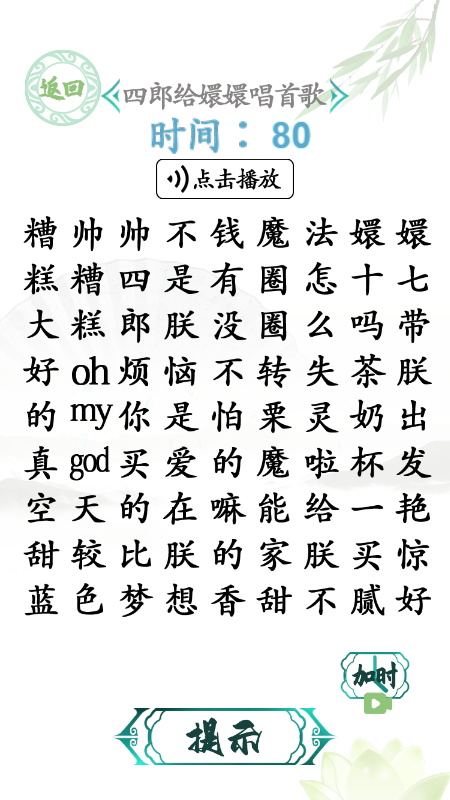 返回
四郎给嬛嬛唱首歌
时间：80
点击播放
糟帅帅不钱魔法嬛嬛
糕糟四是有圈怎十七
大糕郎朕没圈么吗带
好oh烦恼不转失茶朕
的my你是怕栗灵奶出
真god买爱的魔啦杯发
空天的在嘛能给一艳
甜较比朕的家朕买惊
蓝色梦想香甜不腻好
加时
提示